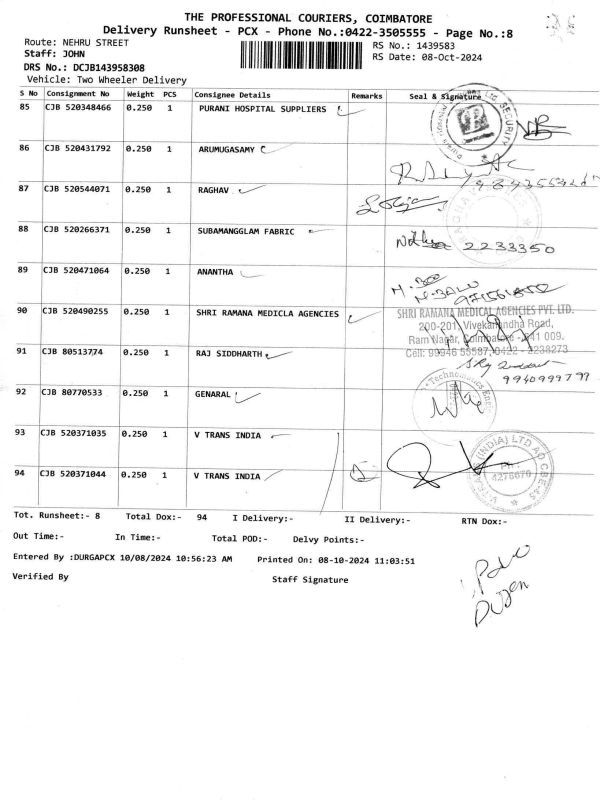 THE PROFESSIONAL COURIERS, COIMBATORE
Delivery Runsheet - PCX - Phone No.:0422-3505555 - Page No.:8
Route: NEHRU STREET
RS No.: 1439583
Staff: JOHN
RS Date: 08-Oct-2024
DRS No.: DCJB143958308
Vehicle: Two Wheeler Delivery
S No Consignment No Weight PCS Consignee Details Remarks Seal & Signature
85 CJB 520348466 0.250 1 PURANI HOSPITAL SUPPLIERS
SECURITY
86 CJB 520431792 0.250 1 ARUMUGASAMY
87 CJB 520544071 0.250 1 RAGHAV
88 CJB 520266371 0.250 1 SUBAMANGGLAM FABRIC
2233350
89 CJB 520471064 0.250 1 ANANTHA
90 CJB 520490255 0.250 1 SHRI RAMANA MEDICLA AGENCIES
SHRI RAMANA MEDICAL AGENCIES PVT. LTD.
200-201, Vivekanandha Road,
Ram Nagar, Coimbatore - 641 009.
91 CJB 80513774 0.250 1 RAJ SIDDHARTH
Cell: 99946 55587, 0422 - 2238273
9940999799
92 CJB 80770533 0.250 1 GENARAL
93 CJB 520371035 0.250 1 V TRANS INDIA
94 CJB 520371044 0.250 1 V TRANS INDIA
V-TRANS (INDIA) LTD
Tot. Runsheet:- 8 Total Dox:- 94 I Delivery:- II Delivery:- RTN Dox:-
Out Time:- In Time:- Total POD:- Delvy Points:-
Entered By :DURGAPCX 10/08/2024 10:56:23 AM Printed On: 08-10-2024 11:03:51
Verified By Staff Signature